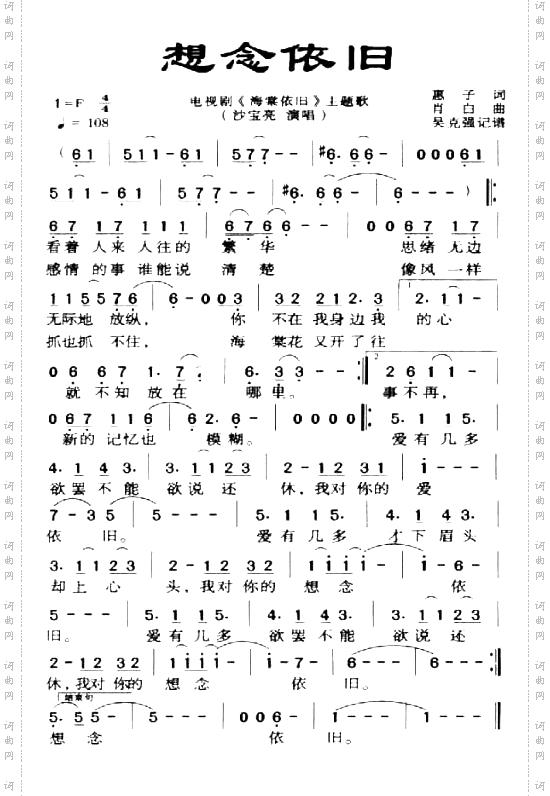 想念依旧
1=F 4/4
♩=108
电视剧《海棠依旧》主题歌
(沙宝亮 演唱)
惠子词
肖白曲
吴克强记谱
(61 | 511-61 | 577-- | #6.66-- | 00061 |
511-61 | 577-- | #6.66-- | 6---) ‖:
67 17 111 | 6766-- | 0067 17 |
看着 人来 人往的 繁华 思绪 无边
感情 的事 谁能说 清楚 像风 一样
115576 | 6-003 | 32 212.3 | 2.11- |
无际地 放纵, 你 不在我身边我 的心
抓也抓 不住, 海 棠花 又开了往
06 67 1.7 | 766-- | 3--- :‖ 2611- |
就 不知 放在 哪里。 事不再,
067 116 | 62.6- | 0000 ‖: 5.1 15. |
新的 记忆也 模糊。 爱有几多
4.1 43. | 3.1123 | 2-12 32 | 1--- |
欲罢 不能 欲说还 休,我对 你的 爱
7-35 | 5--- | 5.1 15. | 4.1 43. |
依 旧。 爱有几多 才下眉头
3.1123 | 2-12 32 | 1111- | 1-6- |
却上心 头,我对 你的 想念 依
5--- | 5.1 15. | 4.1 43. | 3.1123 |
旧。 爱有几多 欲罢不能 欲说还
2-12 32 | 1111- | 1-6- | 6--- :‖
休,我对 你的 想念 依 旧。
结束句
5.55- | 5--- | 0061 | 5--- | 5--- ‖
想念 依旧。
词曲网
词曲网
词曲网
词曲网
词曲网
词曲网
词曲网
词曲网
词曲网
词曲网
词曲网
词曲网